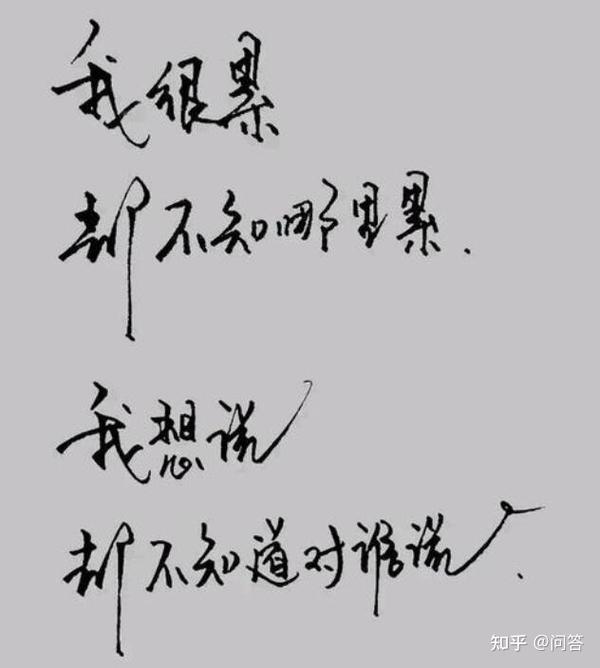 我很累
却不知哪里累.
我想说
却不知道对谁说.
知乎 @问答